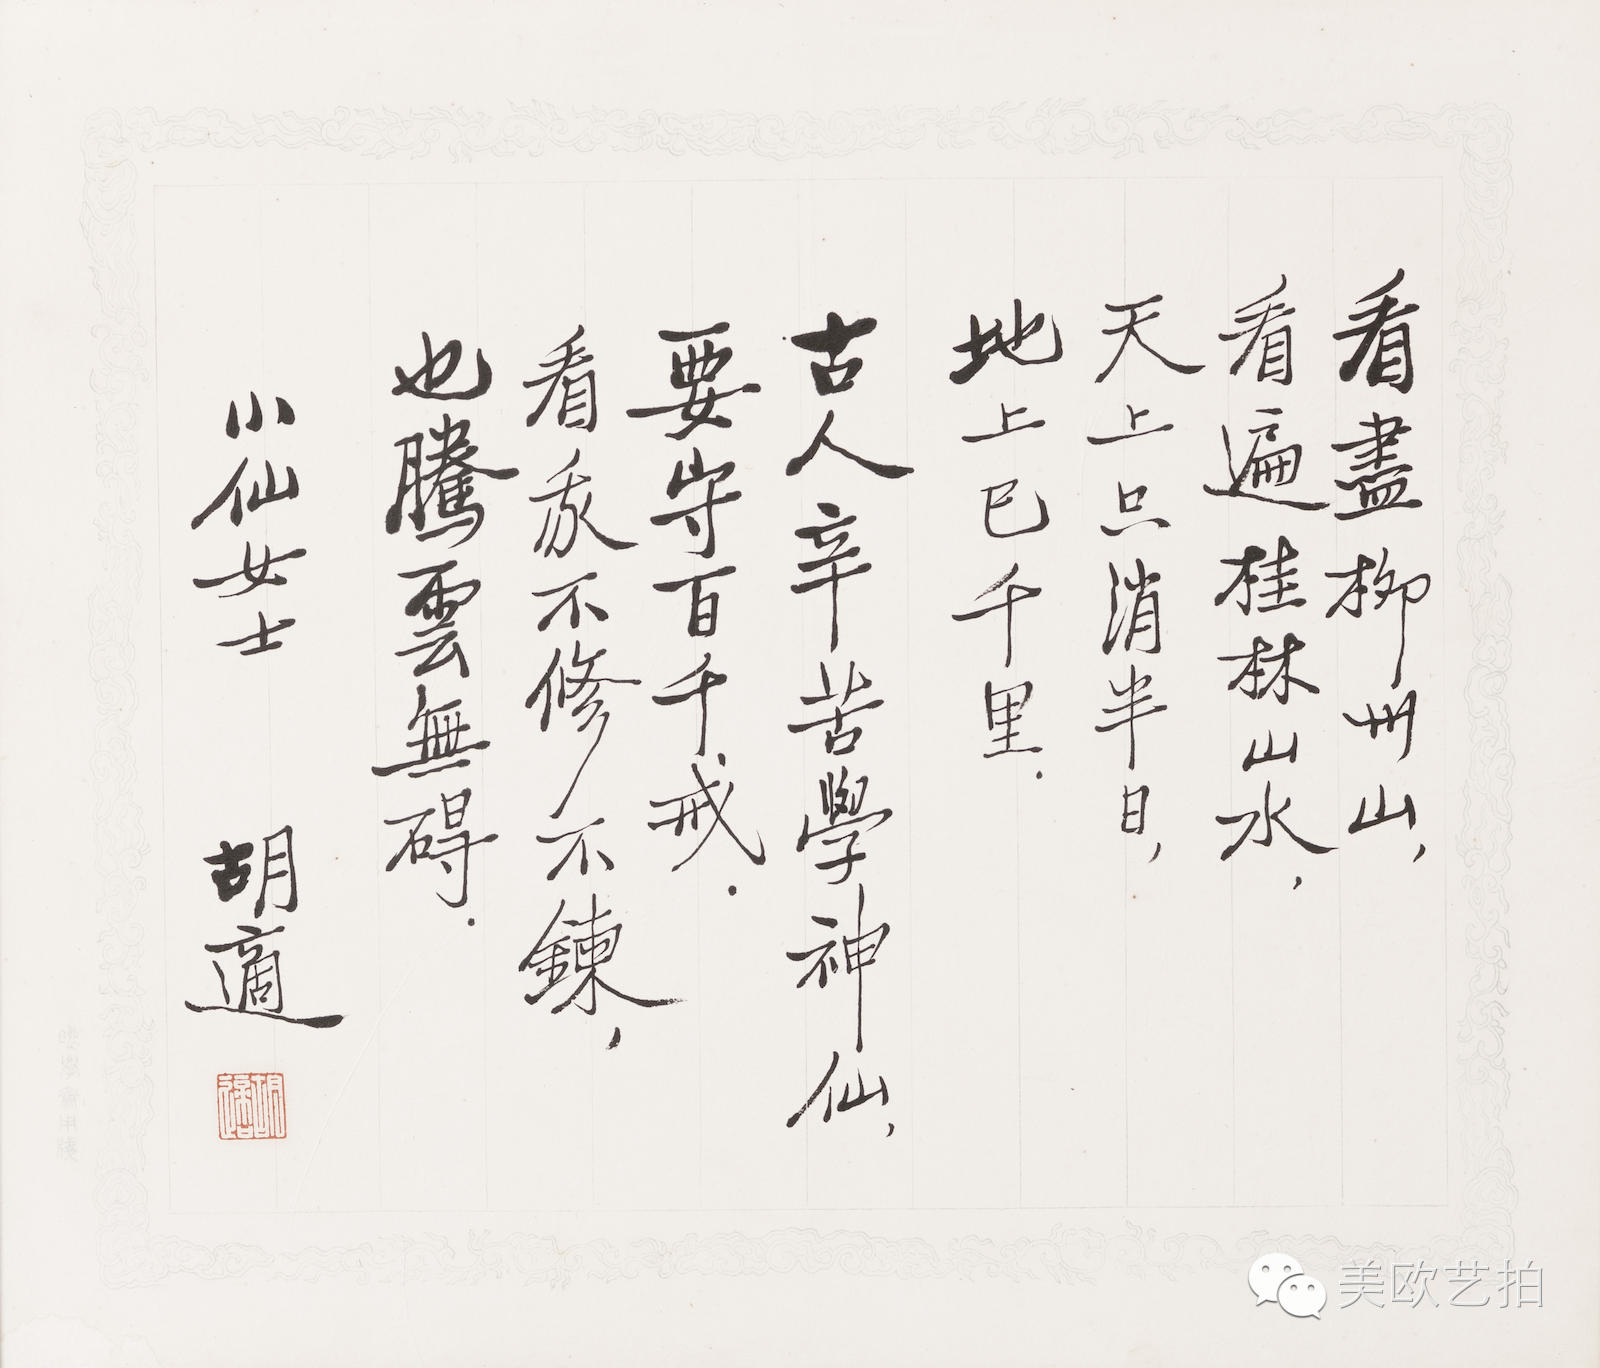 看盡柳州山，
看遍桂林山水，
天上只消半日，
地上已千里．
古人辛苦學神仙，
要守百千戒．
看我不修不鍊，
也騰雲無碍．
小仙女士
胡適
美欧艺拍